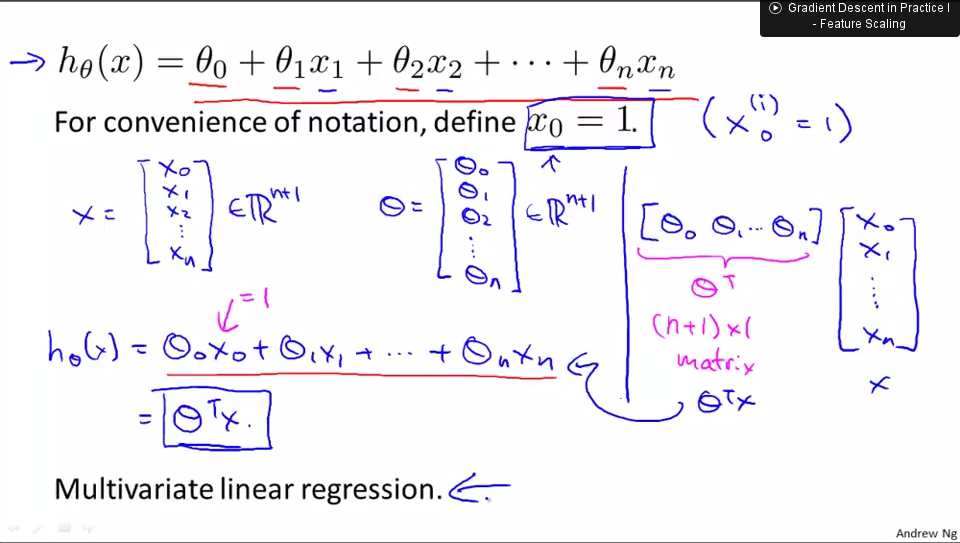 Gradient Descent in Practice I
- Feature Scaling
→ hθ(x) = θ0 + θ1x1 + θ2x2 + ⋯ + θnxn
For convenience of notation, define x0 = 1. (x0^(i) = 1)
x = [x0 x1 x2 ⋮ xn] ∈ ℝ^(n+1) θ = [θ0 θ1 θ2 ⋮ θn] ∈ ℝ^(n+1)
[θ0 θ1 ⋯ θn] [x0 x1 ⋮ xn]
θ^T
(n+1) x 1
matrix
x
θ^T x
= 1
hθ(x) = θ0x0 + θ1x1 + ⋯ + θnxn
= θ^T x.
Multivariate linear regression.
Andrew Ng